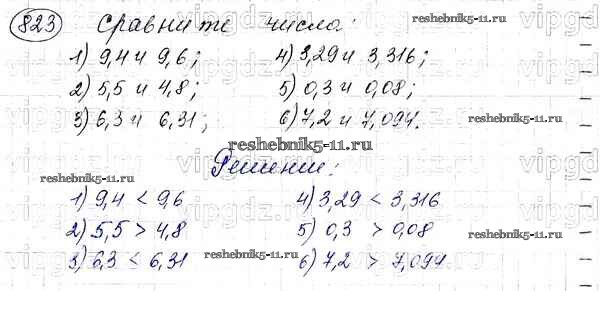 823 Сравните числа: reshebnik5-11.ru
1) 9,4 и 9,6; 4) 3,29 и 3,316;
2) 5,5 и 4,8; 5) 0,3 и 0,08;
3) 6,3 и 6,31; 6) 7,2 и 7,094.
reshebnik5-11.ru
Решение:
reshebnik5-11.ru
1) 9,4 < 9,6 4) 3,29 < 3,316
2) 5,5 > 4,8 5) 0,3 > 0,08
3) 6,3 < 6,31 6) 7,2 > 7,094.
reshebnik5-11.ru reshebnik5-11.ru